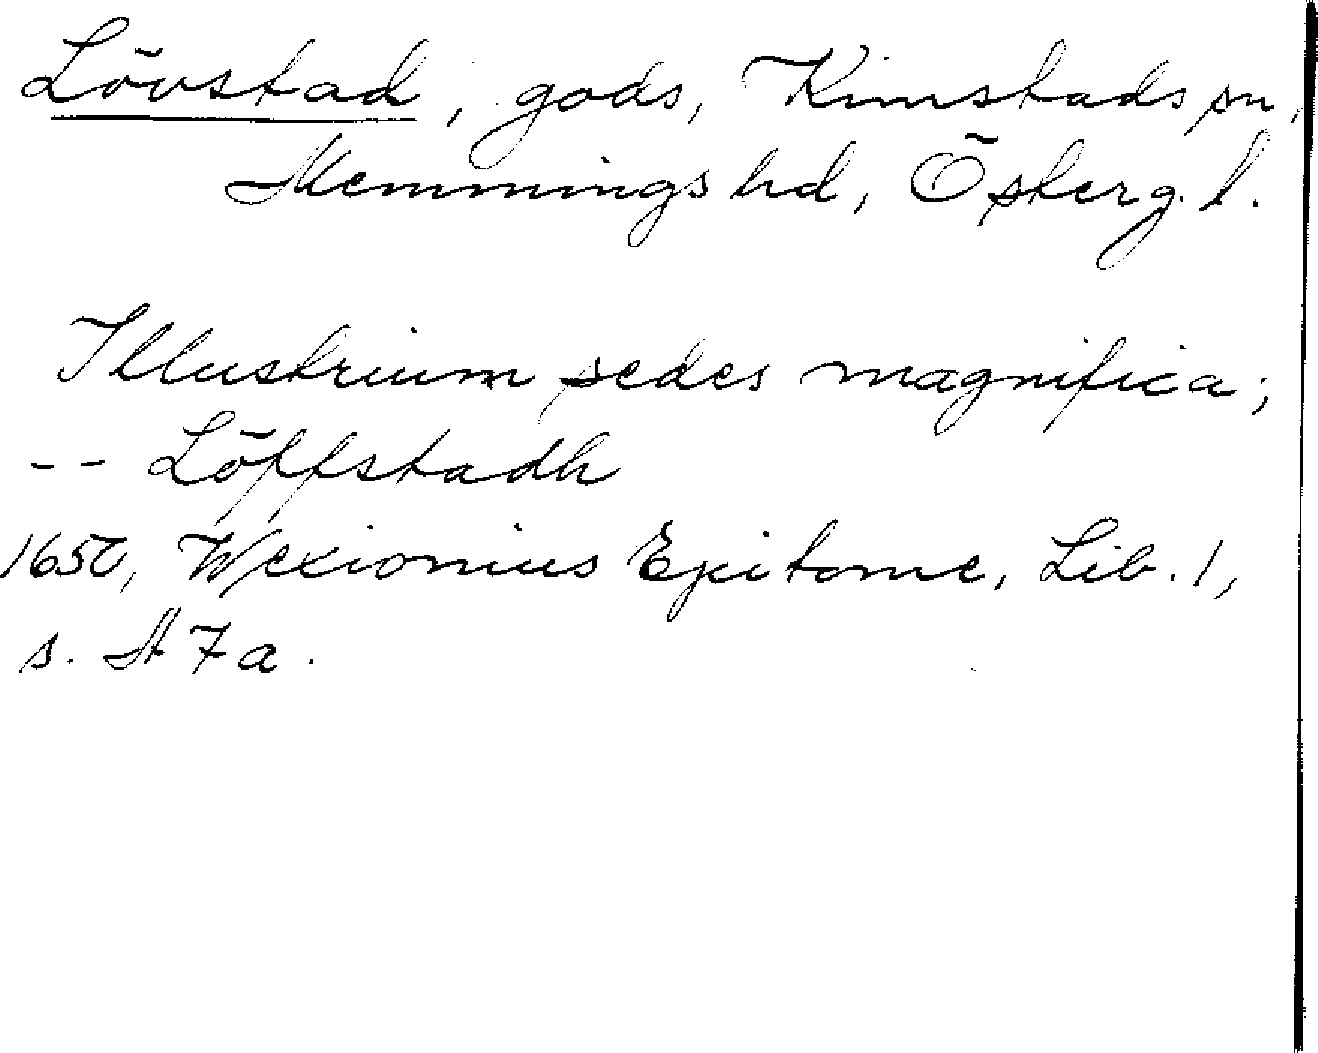 Lövstad, gods, Kimstads sn,
Memmings hd, Österg. l.
Illustrium sedes magnifica;
-- Löffstadh
1650, Wexionius Epitome, Lib. 1,
s. A 7 a.